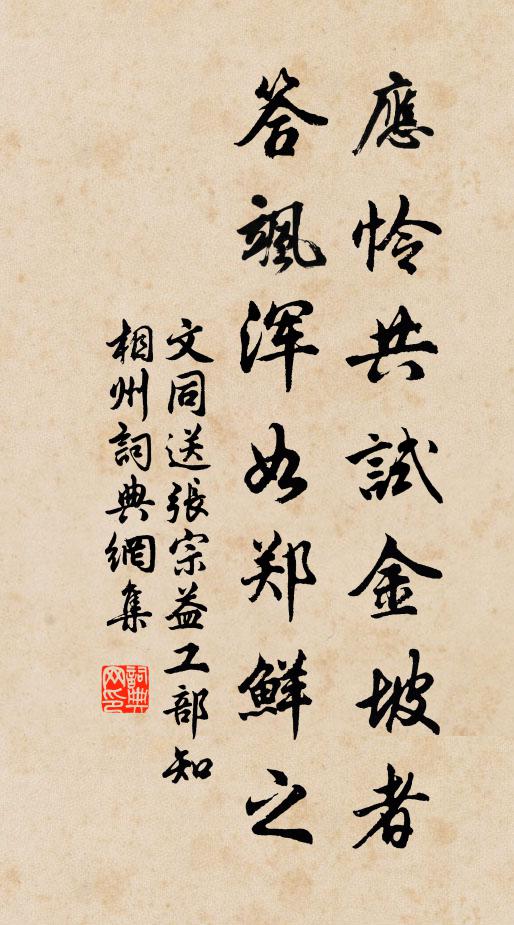 應怜共試金坡者
答颯浑如郑鮮之
文同送張宗益工部知
相州詞典網集
詞典
网印